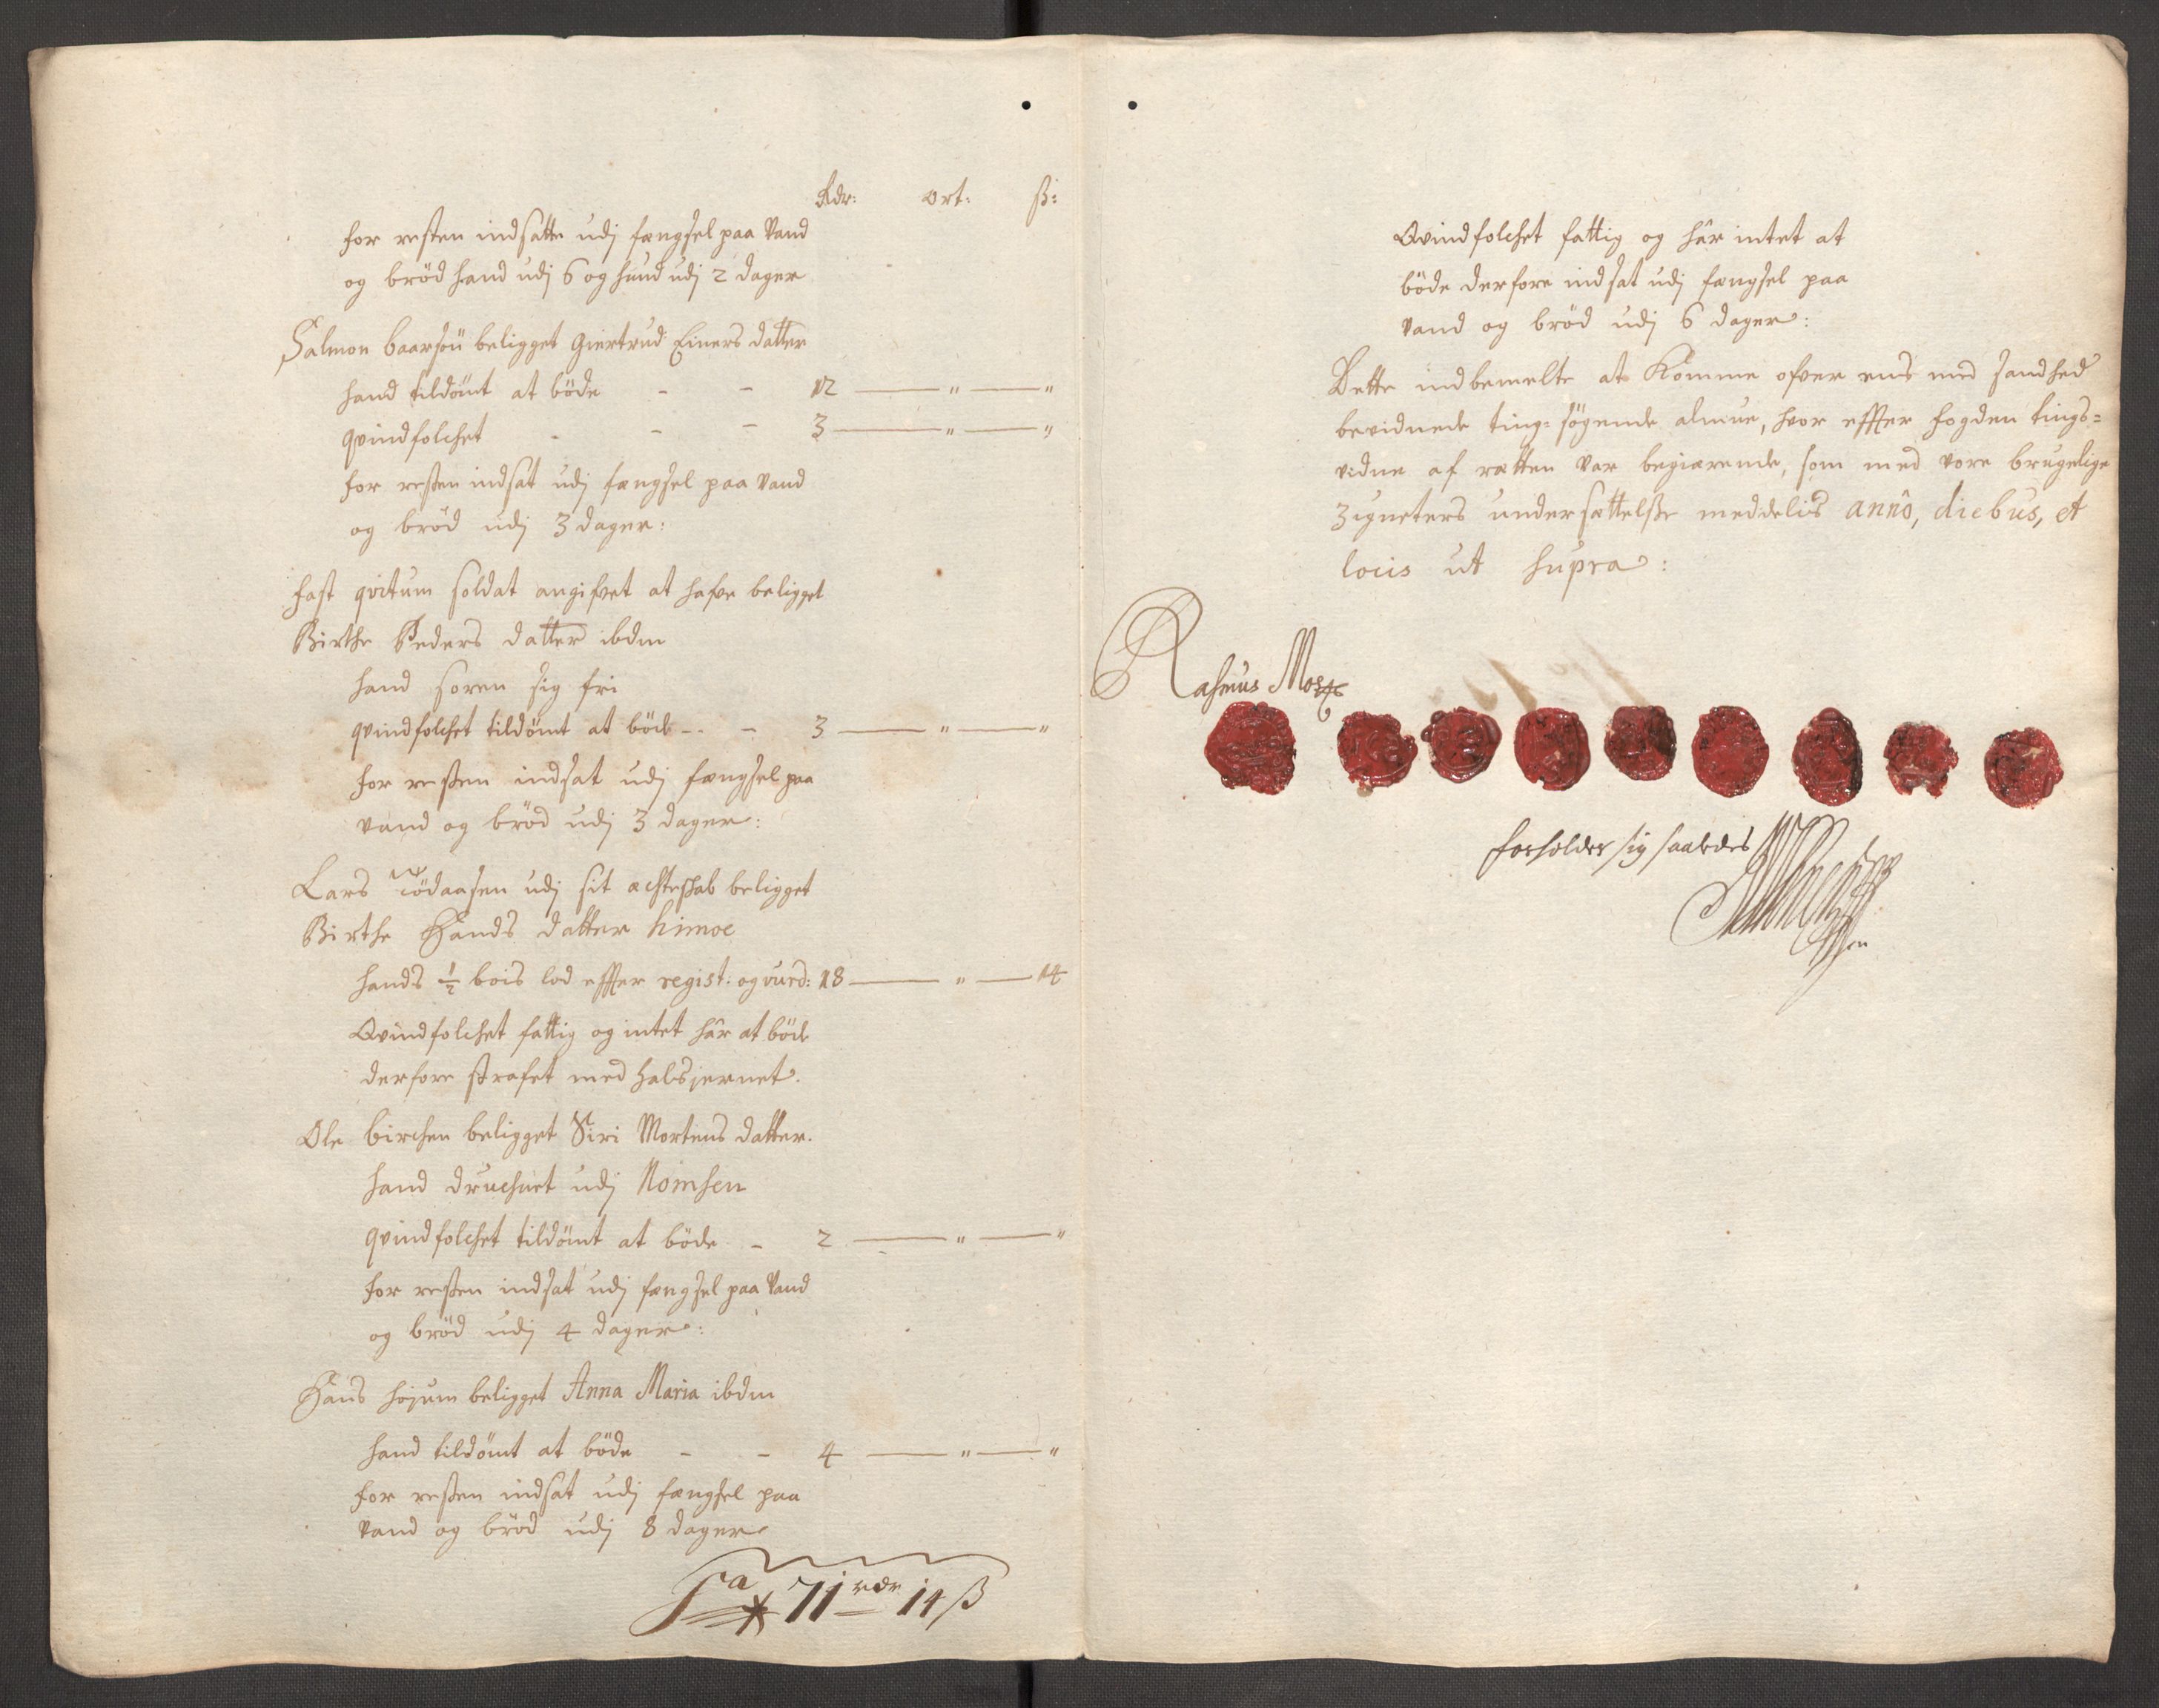 Rdr: ort: ß:
for resten indsatte udj fængsel paa Vand
og bröd hand udj 6 og hund udj 2 dager
Salmon baarsöu beligget Giertrud Einers datter
hand tildömt at böde - - 12 — " — "
qvindfolchet - - - 3 — " — "
for resten indsat udj fængsel paa Vand
og bröd udj 3 dager:
fast qvitum soldat angifvet at hafve beligget
Birthe Peders datter ibdm
hand soren sig fri
qvindfolchet tildömt at böde - - 3 — " — "
for resten indsat udj fængsel paa
Vand og bröd udj 3 dager:
Lars Tödaasen udj sit ächteschab beligget
Birthe Hands datter himoe
hands ½ bois lod effter regist: og vurd: 18 — " — 14
Qvindfolchet fattig og intet hâr at böde
derfore strafet med halsjernet.
Ole birchen beligget Siri Mortens datter.
hand druchnet udj Nomsen
qvindfolchet tildömt at böde - 2 — " — "
for resten indsat udj fængsel paa Vand
og bröd udj 4 dager:
Hans höjum beligget Anna Maria ibdm
hand tildömt at böde - - 4 — " — "
for resten indsat udj fængsel paa
Vand og bröd udj 8 dager
Sa 71 rdr 14 ß
Qvindfolchet fattig og hâr intet at
böde derfore indsat udj fængsel paa
Vand og bröd udj 6 dager:
Dette indbemelte at Komme ofver ens med sandhed
bevidnede ting-sögende almue, hvor effter fogden tings-
vidne af rætten var begiærende, som med vore brugelige
Zigneters undersættelsse meddelis annô, diebus, et
locis ut supra:
Rasmus
forholder sig saaledes